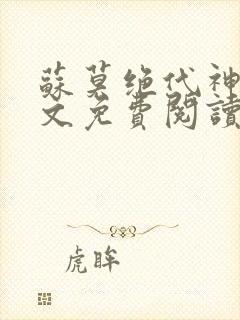 蘇莫绝代神
文免費閱讀
虎眸